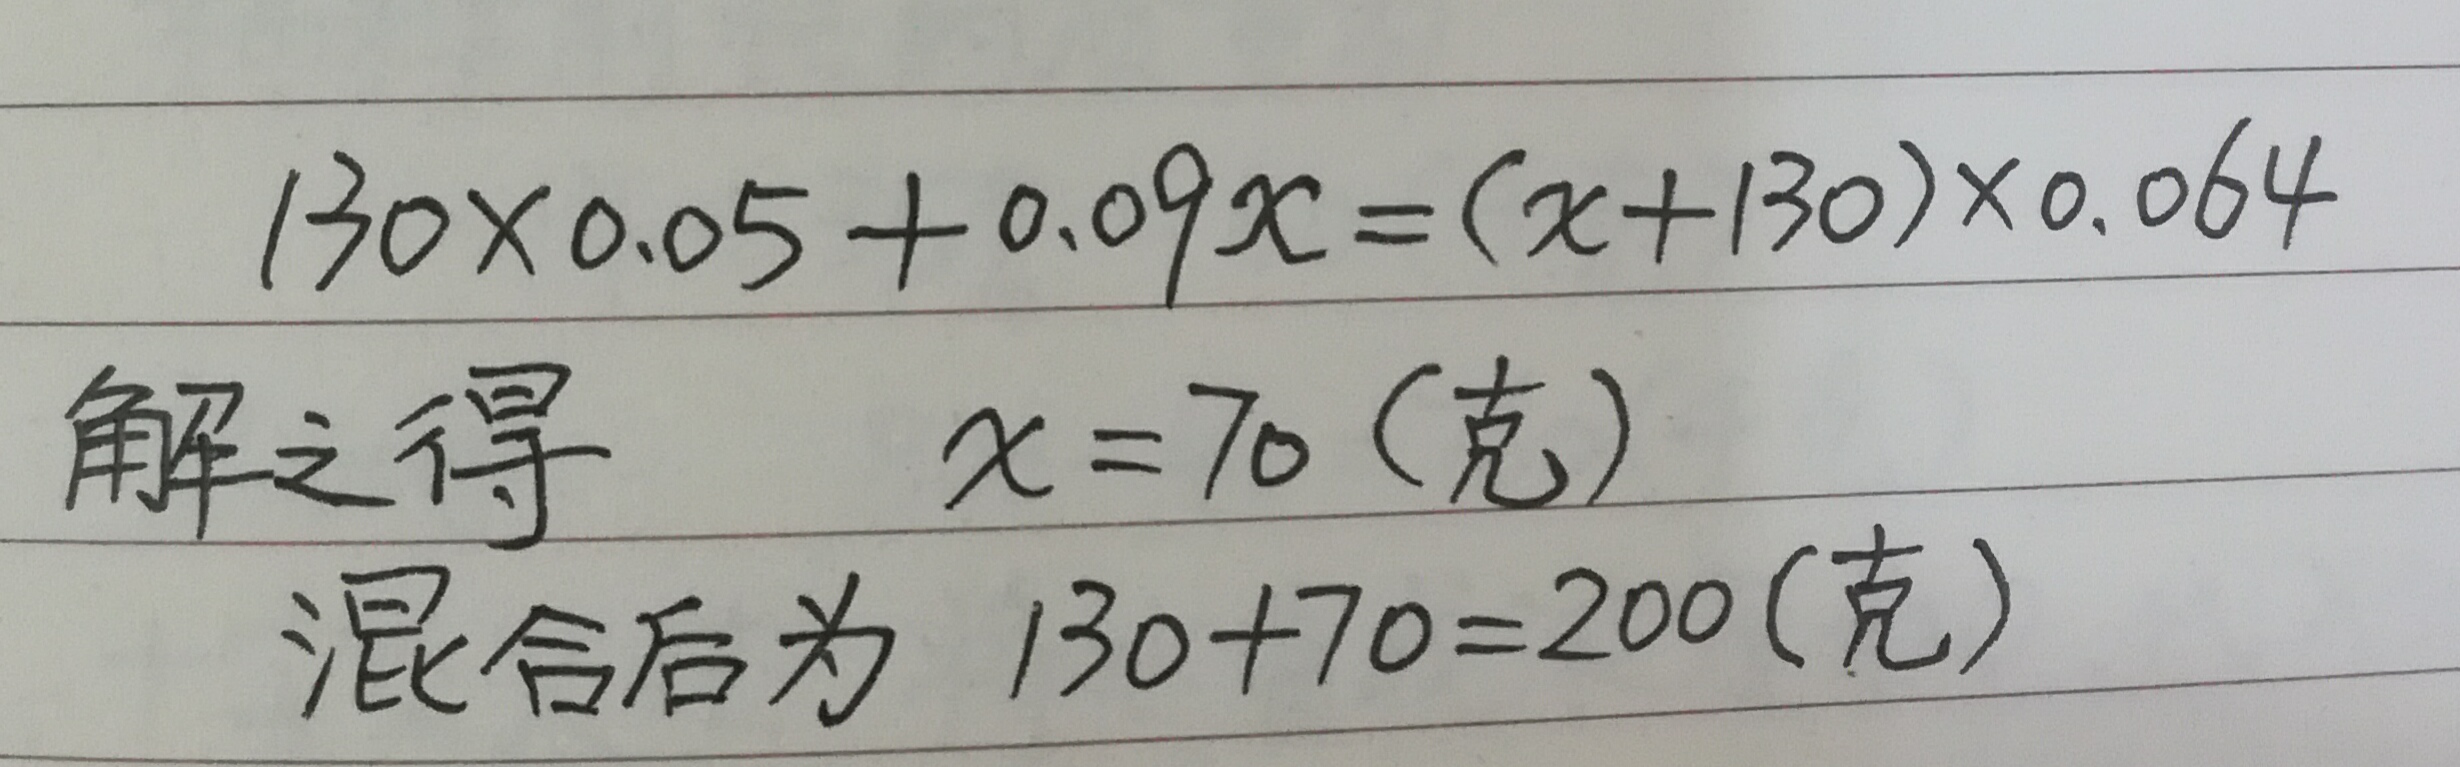 130×0.05+0.09x=(x+130)×0.064
解之得 x=70(克)
混合后为 130+70=200(克)